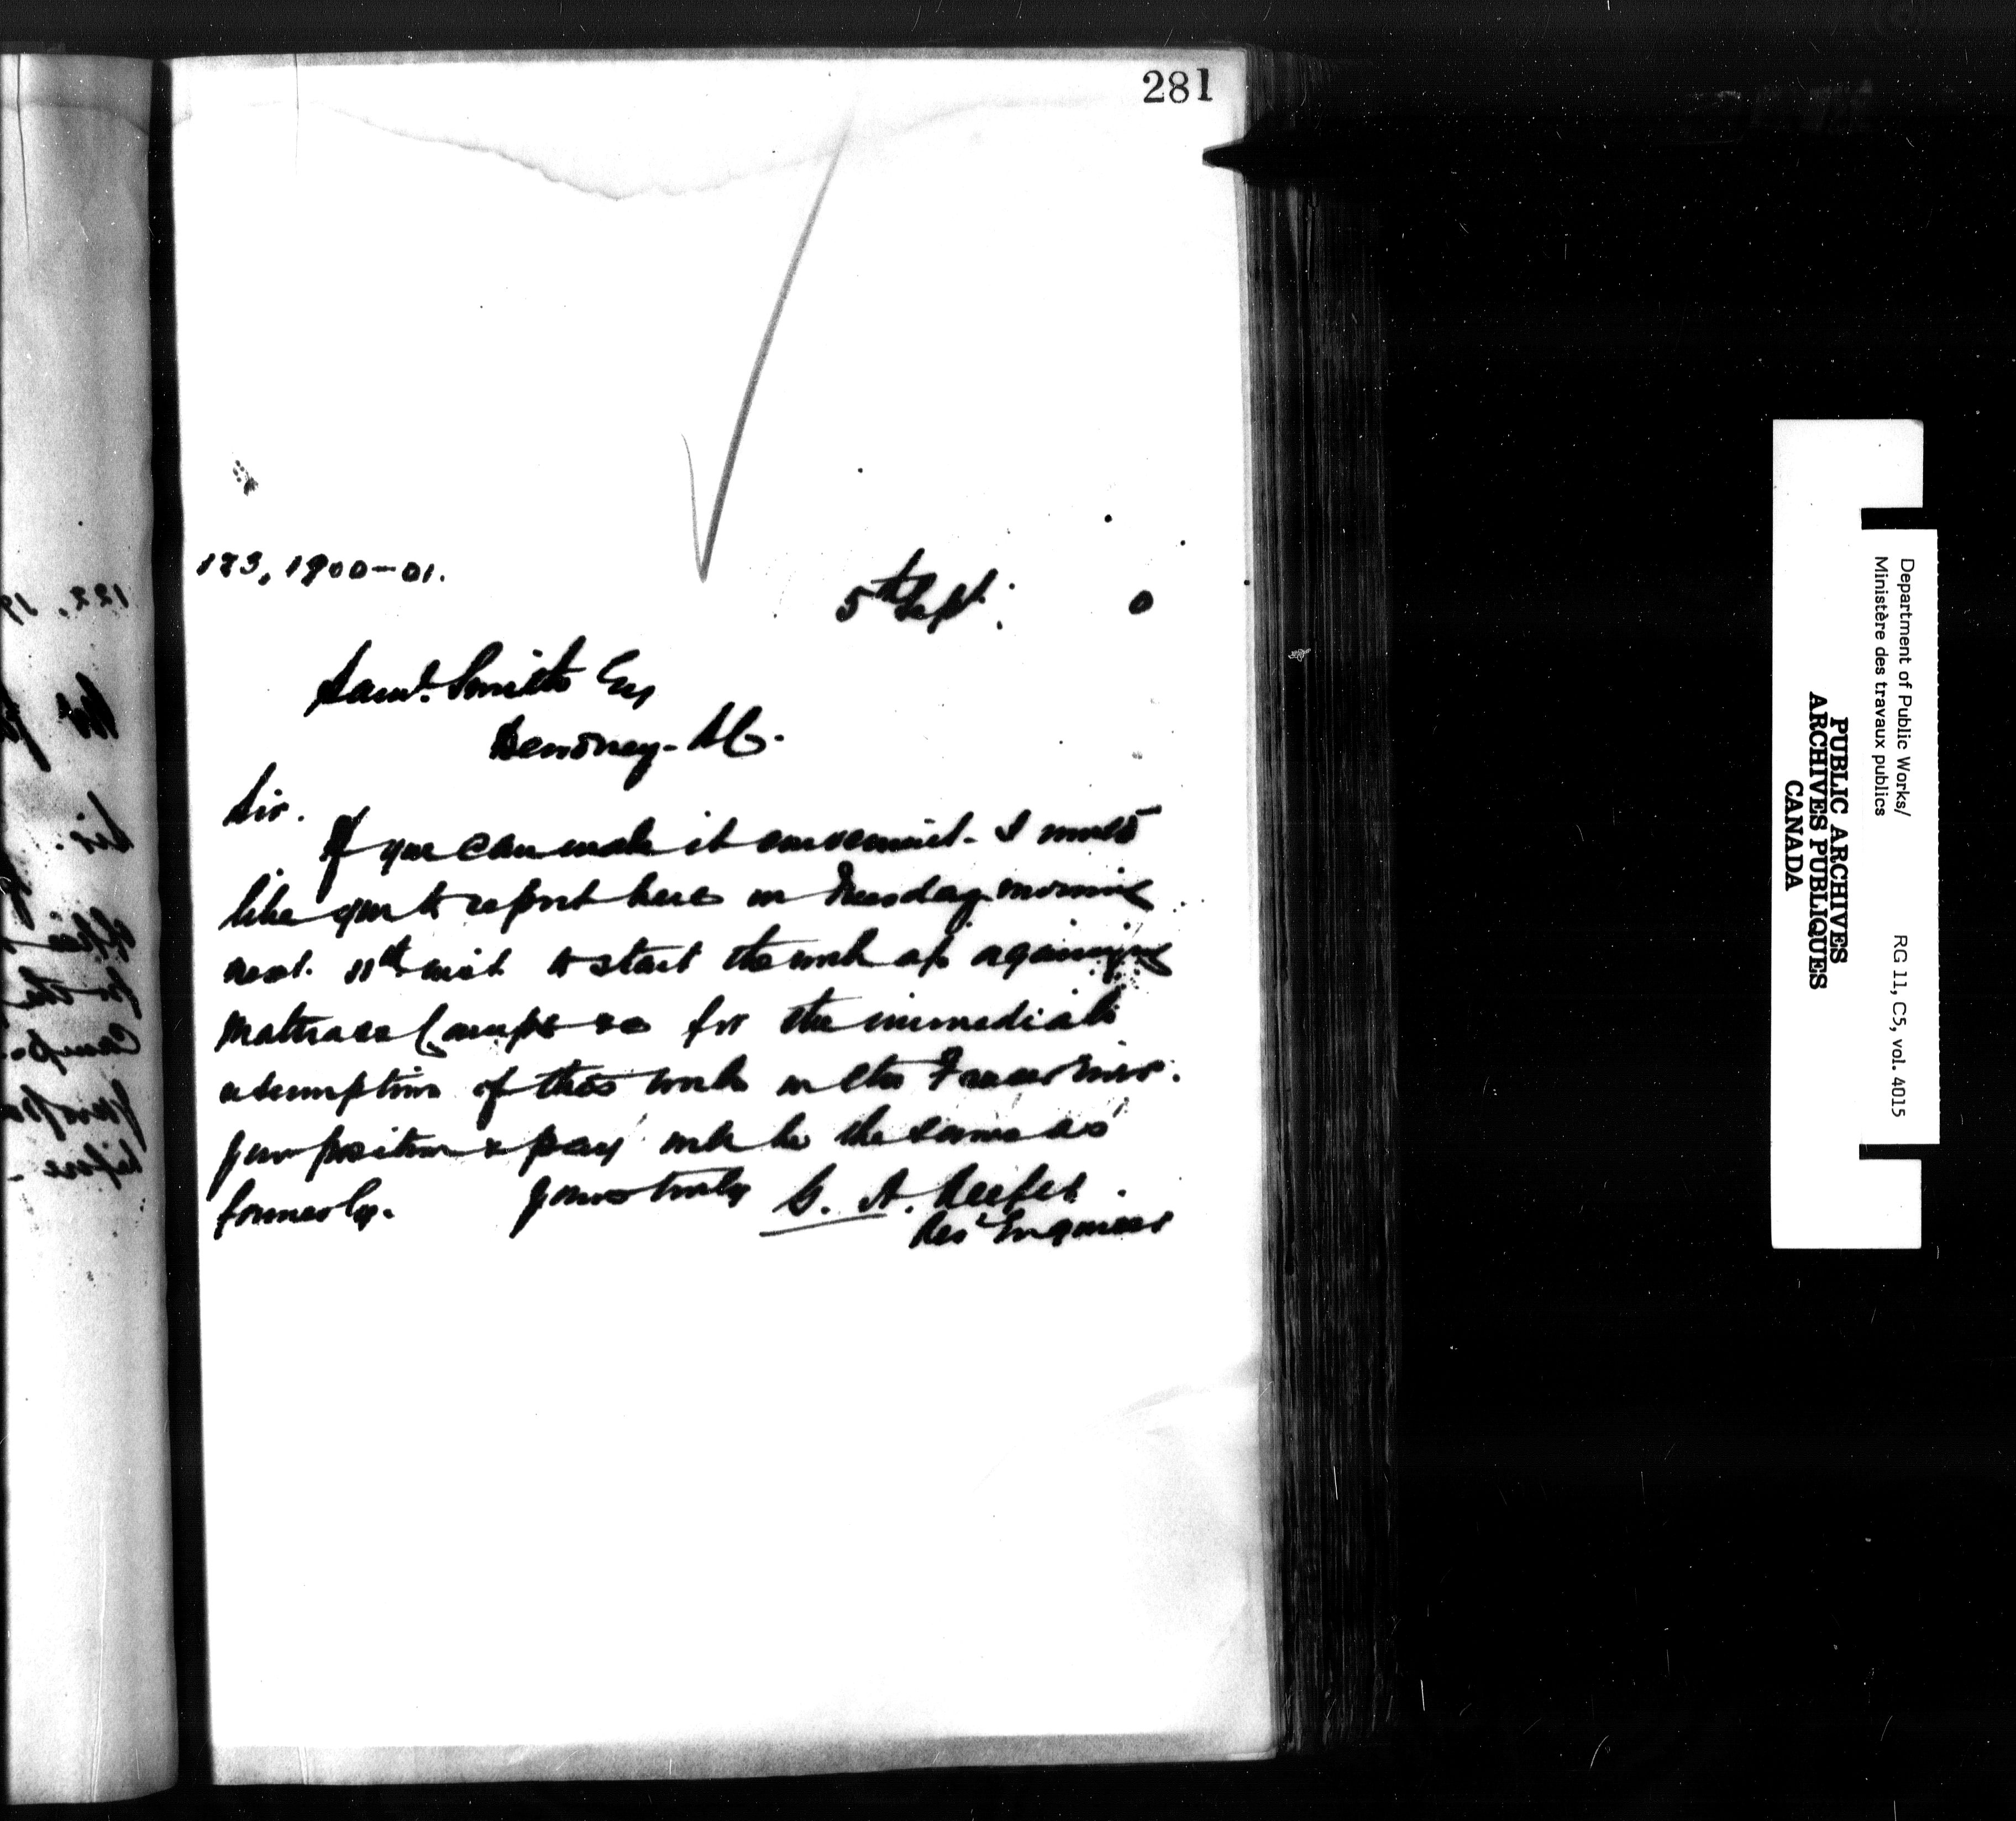 281
123, 1900-01.
5th Sept. 0
Saml. Smith Esq
Dewdney. B.C.
Sir.
If you can make it convenient. I would
like you to report here on Tuesday morning
next. 11th inst to start the work of
Mattrass Camps &c for the immediate
of this work on the Fraser River.
Your position & pay will be the same as
formerly. Yours truly G. A. Keefer.
Res Engineer
Department of Public Works/
Ministère des travaux publics
RG 11, C5, vol. 4015
PUBLIC ARCHIVES
ARCHIVES PUBLIQUES
CANADA